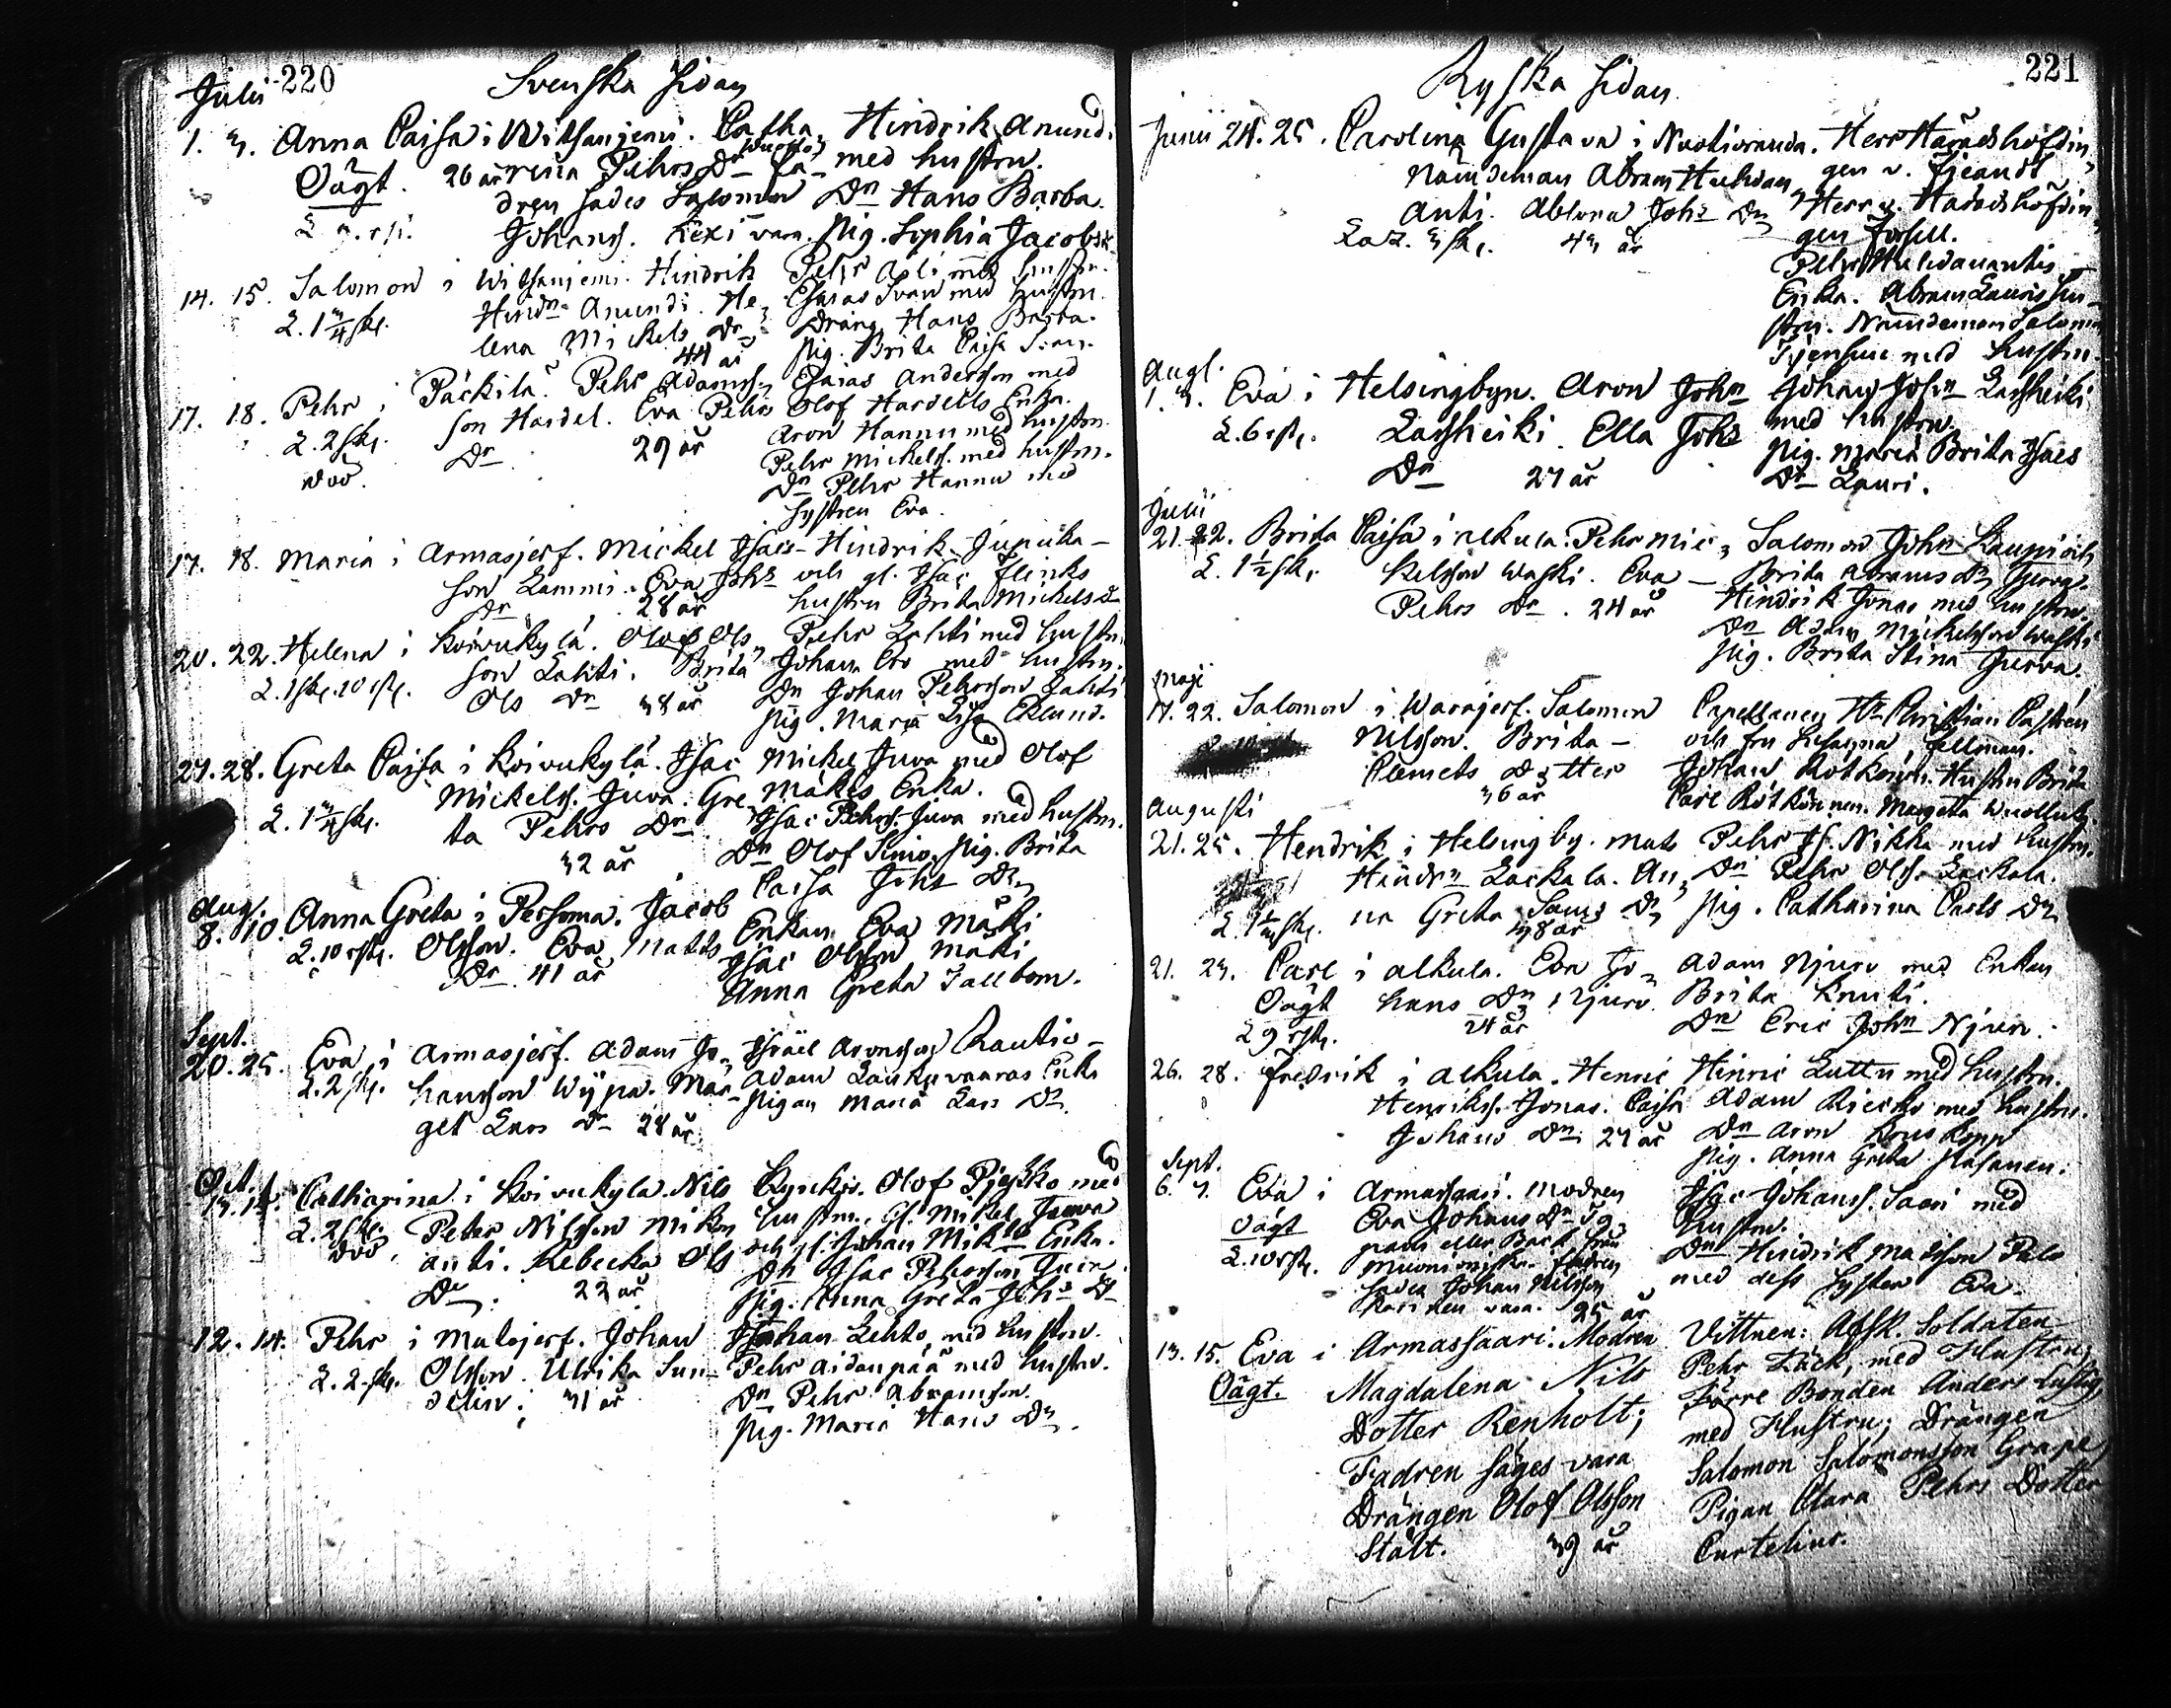 220
Svenska Sidan
Julii
1. 3. Anna Caisa i Witsanjemi. Catha, Hindrik Anund.
Oägt. 26 år rina Pehrs Dr Fa- med hustru.
dren sades Salomon Dn Hans Barba.
Johanss. Kexi vara. Pig. Sophia Jacobs
14. 15. Salomon i Witsanjemi. Hindrik Pehr Asli med hustru.
2. 1 3/4 sk. Hindr. Anundi. He, Esaias Svan med hustru.
lena Mickels Dr Dräng Hans Barba.
44 år Pig. Brita Caisa
17. 18. Pehr i Päckilä. Pehr Adamss, Esaias Andersson med
2. 2 sk. son Hardel. Eva Pehrs Olof Hardells Enka.
död. Dr 29 år Aron Hannu med hustru.
Pehr Mickelss. med hustru.
Dn Pehr Hannu med
Systren Eva.
17. 18. Maria i Armasjerf. Mickel Isacs- Hindrik Junuka-
son Lammi. Eva Johs och gl. Isac Flinks
Dr 28 år hustru Brita Mickels D
20. 22. Helena i Koivukylä. Olof Ols, Pehr Lahti med hustru.
2. 1 sk. 10 rst. son Lahti. Brita Johan Ero med hustru.
Ols Dr 38 år Dn Johan Pehrsson Lahti
Pig. Maria Lisa Eklund.
27. 28. Greta Caisa i Koivukylä. Isac Mickel Juva med Olof
2. 1 3/4 sk. Mickelss. Juva. Gre, Mäkis Enka.
ta Pehrs Dr Isac Pehrs. Juva med hustru.
32 år Dn Olof Simo. Pig. Brita
Caisa Johs Dr
Aug.
8. 10. Anna Greta i Persoma. Jacob Enkan Eva Mäki
2. 10 rst. Olsson. Eva Mats Isac Olsson Mäki
Dr 41 år Anna Greta Tallbom.
Sept.
20. 25. Eva i Armasjerf. Adam Jo, Israel Aronsson Rautio-
2. 2 sk. hansson Wijpa. Mar- Adam Laukuvaaras Enka
get Lars Dr 28 år Pigan Maria Lars Dr.
Oct.
Catharina i Koivukylä. Nils Kyrkjo. Olof Pjesko med
2. 2 sk. Pehr Nilsson Miku hustru. Gl. Mickel Juuva
död. anti. Rebecka Ols och gl. Johan Mik Enka.
Dr. 22 år Dn Isac Pehrsson
Pig. Anna Greta Johs D
12. 14. Pehr i Matojerf. Johan Johan Lehto med hustru.
2. 2 sk. Olsson. Ulrika Sun- Pehr Aidanpää med hustru.
delin. 31 år Dn Pehr Abramsson.
Pig. Maria Hans Dr.
221
Ryska Sidan
Junii 24. 25. Carolina Gustava i Nuotioranda. Herr Häradshöfdin,
Nämdeman Abram Huhdan gen v. Fjeandt
anti. Ablona Johs Dr Herr v. Häradshöfdin
43 år gen Forsell.
Pehr Huhdanantis
Enka. Abram Lauris hu-
stru. Nämdeman Salomon
med hustru.
Augl.
1. 3. Eva i Helsingbyn. Aron John Johan Johsn Lassheiki
2. 6 rst. Lassheiki. Ella Johs med hustru.
Dn 27 år Pig. Maria Brita Isacs
Dr Lauri.
Julii
21. 22. Brita Caisa i Alkula. Pehr Mic, Salomon Johsn Kaupi och
2. 1 1/2 sk. kelsson Waski. Eva - Brita Abrams Dr
Pehrs Dr. 24 år Hindrik Jonas med hustru.
Dn Adam Mickelsson Waski
Pig. Brita Stina Jurva.
Maji
17. 22. Salomon i Waarajerf. Salomon Capellanen Hr Christian Castrén
Nilsson. Brita - och fru Susanna Fellman.
Clemets Dotter Johan Rötkönen. Hustru Brita
36 år Carl Rötkönen. Margeta
Augusti
21. 25. Hendrik i Helsingby. Mats Pehr Is. Nikka med hustru.
Hindrn Lackala. An, Dn Pehr Ols. Lackala.
na Greta Sams Dr Pig. Catharina Carls Dr
38 år
21. 23. Carl i Alkula. Eva Jo, Adam Njuro med Enkan
Oägt hans Dr Njuro. Brita Knuti.
2. 9 rst. 24 år Dn Eric John Njuro.
26. 28. Fredrik i Alkula. Henric Hinric Luttu med hustru.
Henrikss. Jonas. Caisa Adam Kiecks med hustru.
Johans Dr. 27 år Dn Aron
Pig. Anna Greta
Sept.
6. 7. Eva i Armassaari. Modren Isac Johanss. Saari med
Oägt Eva Johans Dr hustru.
2. 10 rst. eller Back från Dn Hindrik Madsson Palo
Fadren med dess Syster Eva.
sades Johan Nilsson
vara. 25 år
13. 15. Eva i Armassaari. Modren Vittnen: Afsk. Soldaten
Oägt. Magdalena Nils Pehr Lück, med Hustru;
Dotter Renholt; Förre Bonden Anders Lustig
Fadren säges vara med Hustru; Drängen
Drängen Olof Olsson Salomon Salomonsson Grape
Stålt. 39 år Pigan Clara Pehrs Dotter
Curtelius.